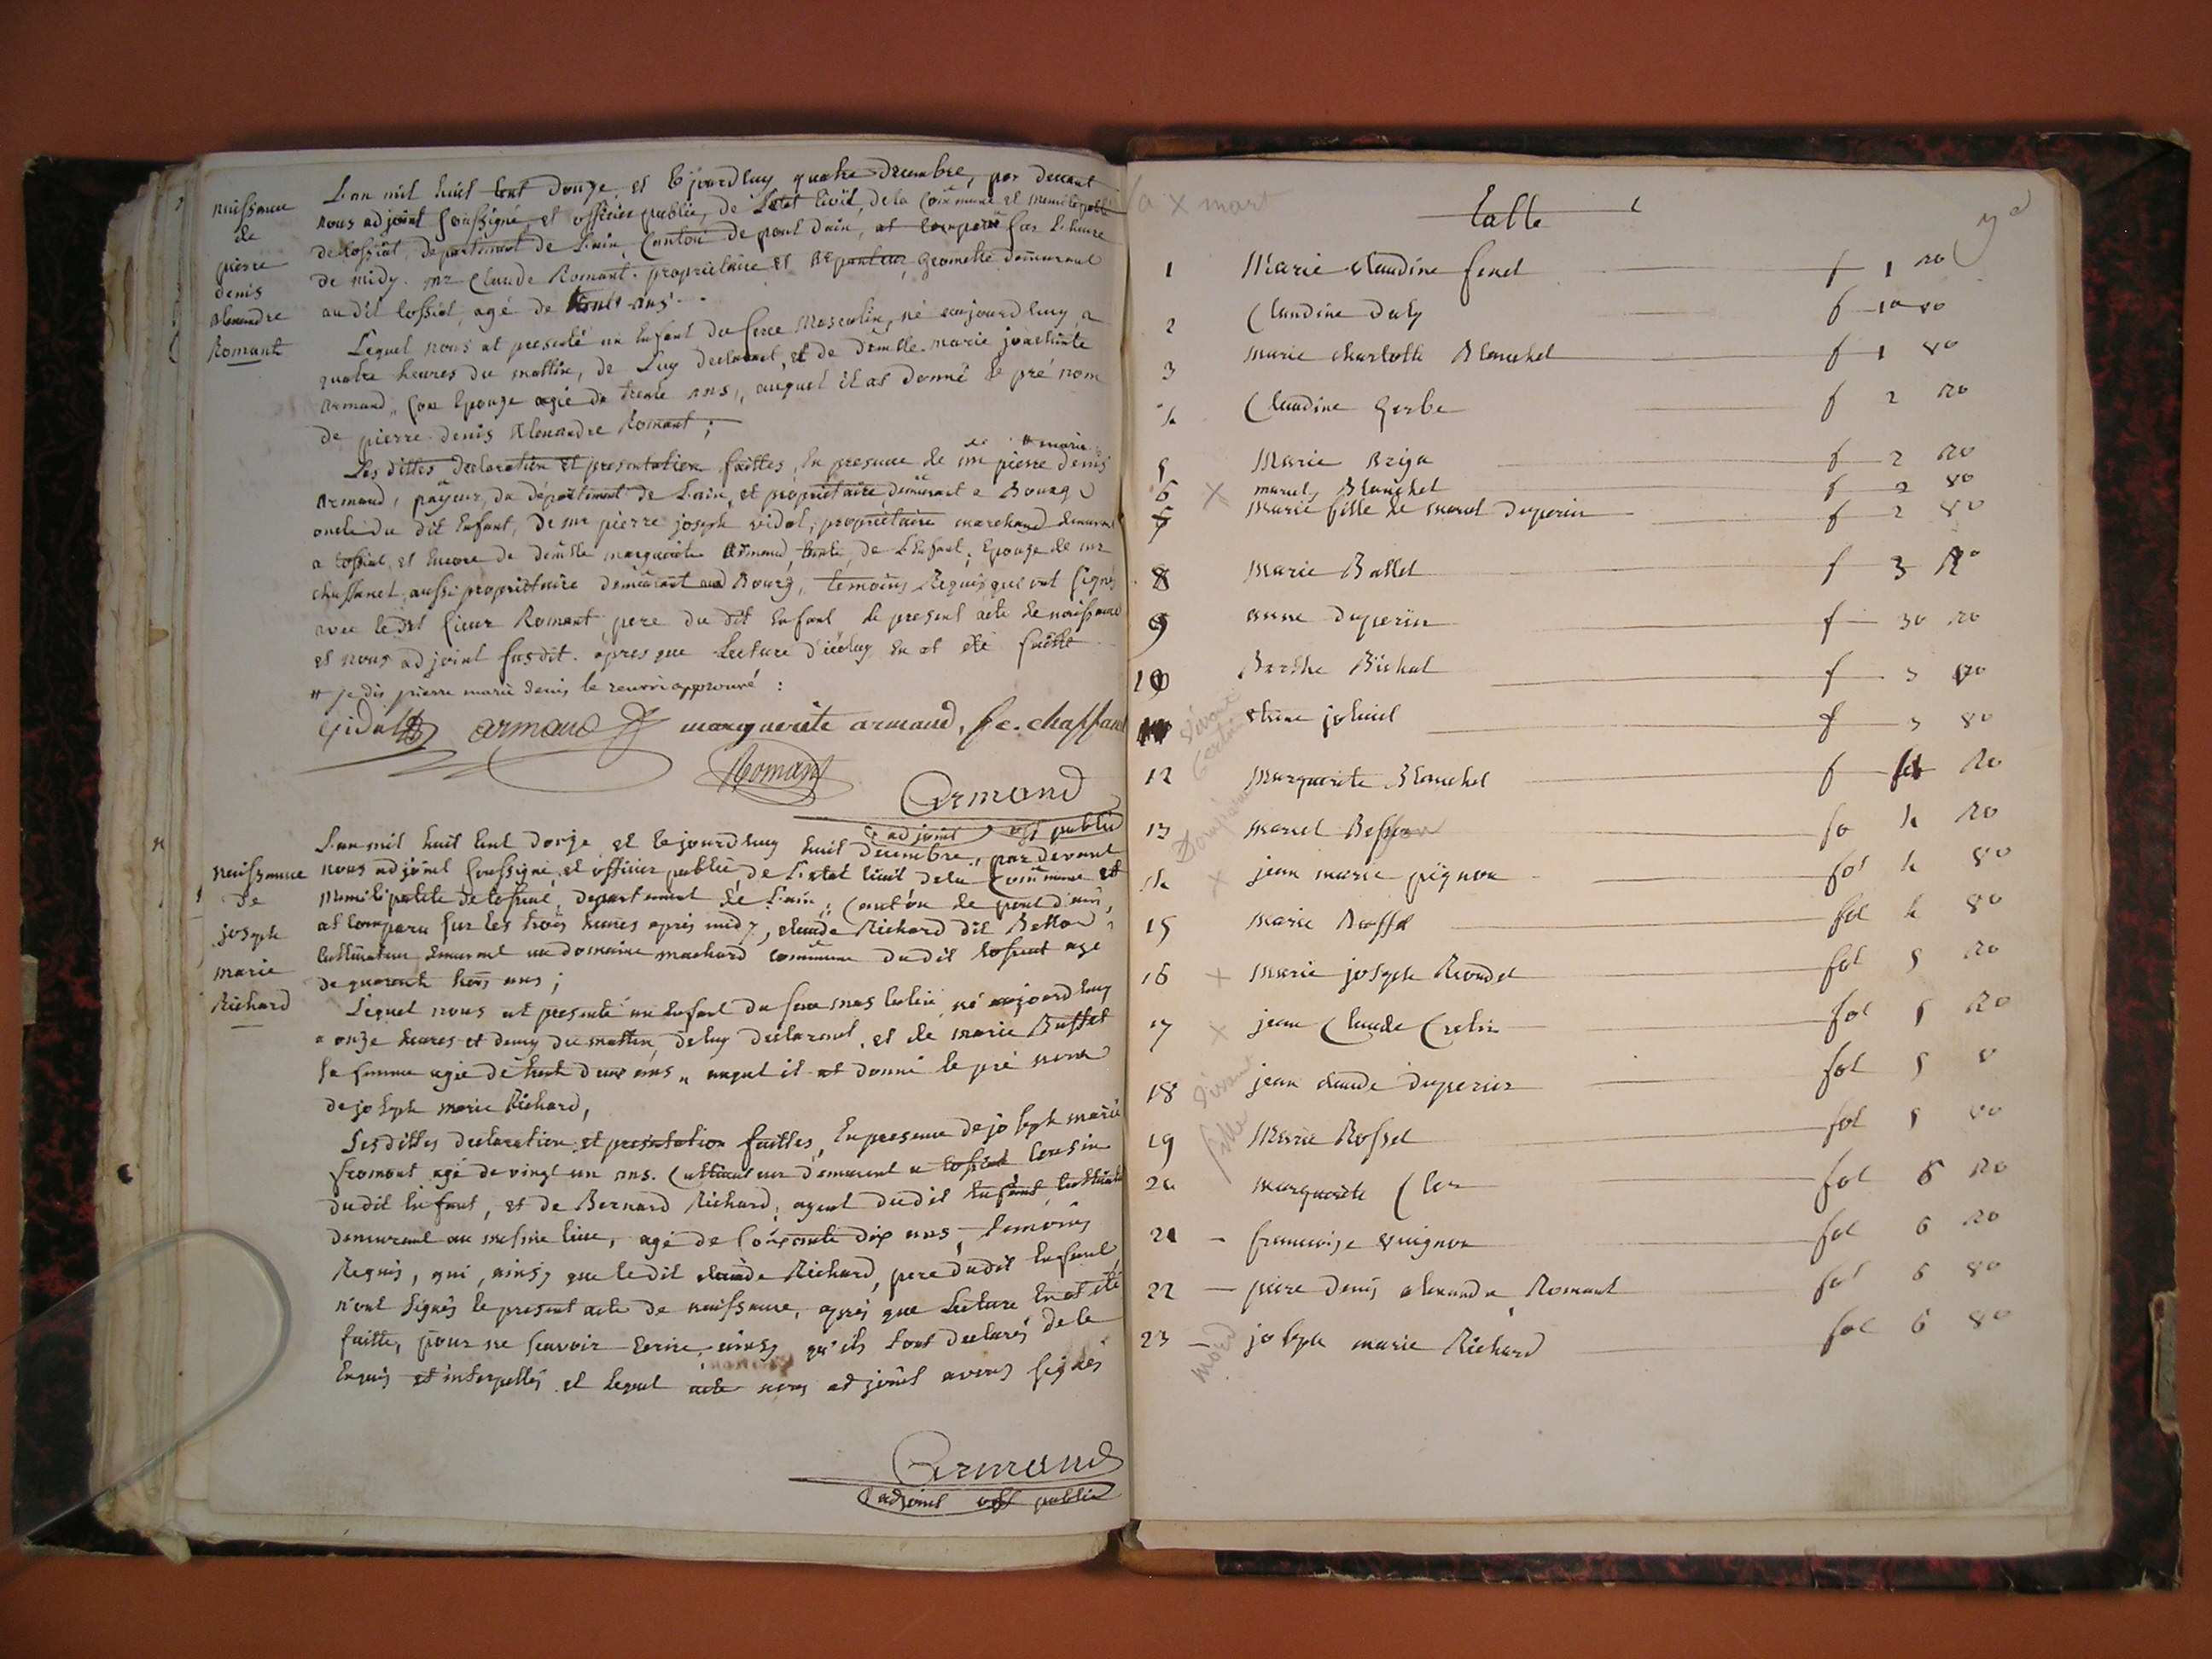 naissance
de
pierre
denis
alexandre
Romant
L'an mil huit cent douze et le jourdhuy quatre decembre, par devant
nous adjoint soussigné, et officier public, de L'etat Civil, de la Commune et
de tossiat, departement de L'ain, Canton de pont dain, at comparu sur L'heure
de midy. mr Claude Romant. propriétaire et geometre demeurant
au dit tossiat, agé de ans.
Lequel nous at presenté un Enfant du sexe Masculin, né aujourdhuy a
quatre heures du mattin, de Luy declarant, et de demlle marie
armand, son Epouze agée de trente ans, auquel il at donné le pré nom
de pierre denis Alexandre Romant;
Les dittes declaration et presentation faittes, En presence de mr pierre denis # marie
armand, payeur, du département de L'ain, et propriétaire demeurant a Bourg
oncle du dit Enfant, de mr pierre joseph vidal, propriétaire marchand demeurant
a tossiat, et Encore de demlle margueritte armand, tante, de L'Enfant, Epouze de mr
chaffanet, aussi propriettaire demeurant Bourg, temoins Requis qui ont signés
avec le dit sieur Romant, pere du dit Enfant le present acte de naissance
et nous adjoint susdit. apres que Lecture d'icéluy En at été faitte
# je dis pierre marie denis le renvoi approuvé :
Vidal armand marguerite armand, f. c. chaffanet
Romant
Armand
adjoint off public
naissance
de
joseph
marie
Richard
L'an mil huit cent douze et le jourdhuy huit decembre, par devant
nous adjoint soussigné, et officier public, de L'etat Civil de la Commune et
Municipalité de tossiat, departement de L'ain, Canton de pont d'ain,
at comparu sur les trois heures après midy, claude Richard dit
cultivateur demeurant au domaine machard commune du dit tossiat agé
de quarante trois ans;
Lequel nous at presenté un Enfant du sexe masculin, né aujourdhuy
a onze heures et demy du mattin, de luy declarant, et de marie Buffet
sa femme agée de trente deux ans, auquel il at donné le pré nom
de joseph marie Richard,
Les dittes declaration et presentation faittes, En presence de joseph marie
fromont agé de vingt un ans. Cultivateur demeurant a tossiat Cousin
du dit Enfant, et de Bernard Richard, agent du dit Enfant, Cultivateur
demeurant au mesme lieu, agé de soixante dix ans, temoins
Requis, qui, ainsy que le dit claude Richard, pere du dit Enfant
n'ont signés le present acte de naissance, aprés que Lecture En at été
faitte, pour ne sçavoir Ecrire, ainsy qu'ils l'ont declarés de le
Enquis et interpellés et lequel acte nous adjoint avons signés
Armand
adjoint off public
a x mort
table
1 Marie claudine f 1 ro
2 Claudine f 1 vo
3 marie charlotte Blanchet f 1 vo
4 Claudine Gerbe f 2 ro
5 Marie f 2 ro
6 x Blanchet f 2 vo
7 Marie fille de marcel Duperier f 2 vo
8 Marie Ballet f 3 ro
9 anne Duperier f 3 ro
10 Berthe Bichat f 3 vo
f 3 vo
12 Marguerite Blanchet f ro
13 marcel fo 4 ro
14 x jean marie pignon fol 4 vo
15 marie Buffet fol 4 vo
16 x marie joseph fol 5 ro
17 x jean Claude fol 5 ro
18 jean claude Duperier fol 5 v
19 Marie Rosset fol 5 vo
20 marguerite Cler fol 6 ro
21 - francoise fol 6 ro
22 - piere denis alexandre Romant fol 6 vo
23 - joseph marie Richard fol 6 vo